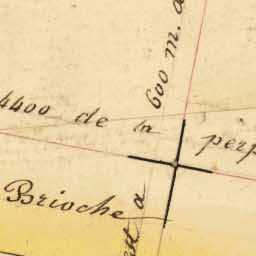 600 m. a
4400 de la perp
Brioche
est a